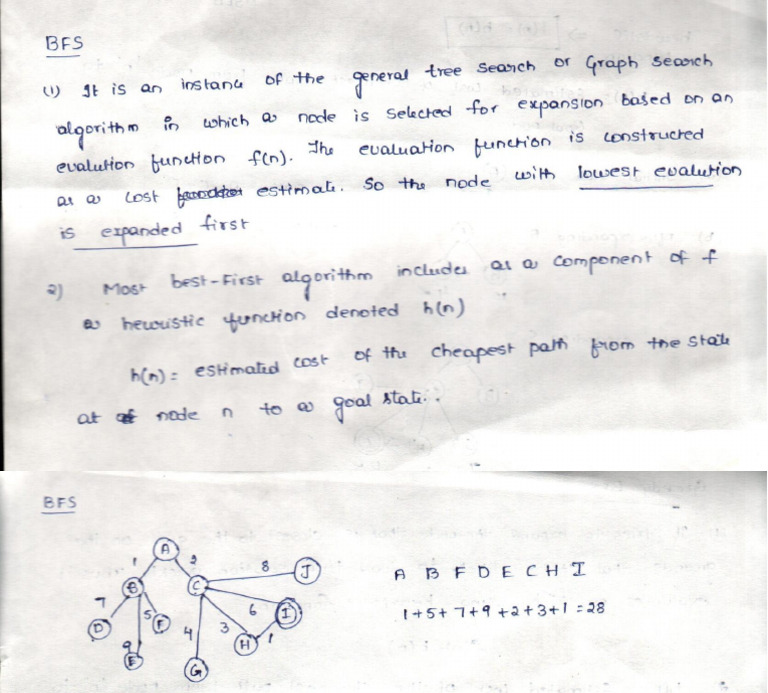 BFS
(1) It is an instance of the general tree search or Graph search
algorithm in which a node is selected for expansion based on an
evalution function f(n). The evaluation function is constructed
as a cost estimate. So the node with lowest evalution
is expanded first
2) Most best-First algorithm includes as a component of f
a heuristic function denoted h(n)
h(n) = estimated cost of the cheapest path from the state
at node n to a goal state.
BFS
A
1 2
8 J
B C
7 5 6 I
D F
9 4 3 H 1
E G
A B F D E C H I
1+5+7+9+2+3+1=28